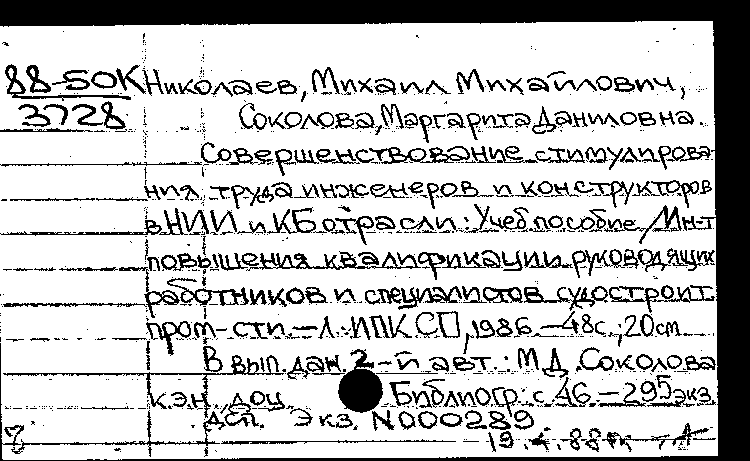 88-50К Николаев, Михаил Михайлович,
3728 Соколова, Маргарита Даниловна.
Совершенствование стимулирова-
ния труда инженеров и конструкторов
в НИИ и КБ отрасли: Учеб. пособие / Ин-т
повышения квалификации руководящих
работников и специалистов судостроит.
пром-сти. — Л.: ИПК СП, 1986. — 48с.; 20см.
В вып. дан. 2-й авт.: М.Д. Соколова
к.э.н. доц. Библиогр.: с. 46. — 295 экз.
ДСП. Экз. N000289
19.4.88